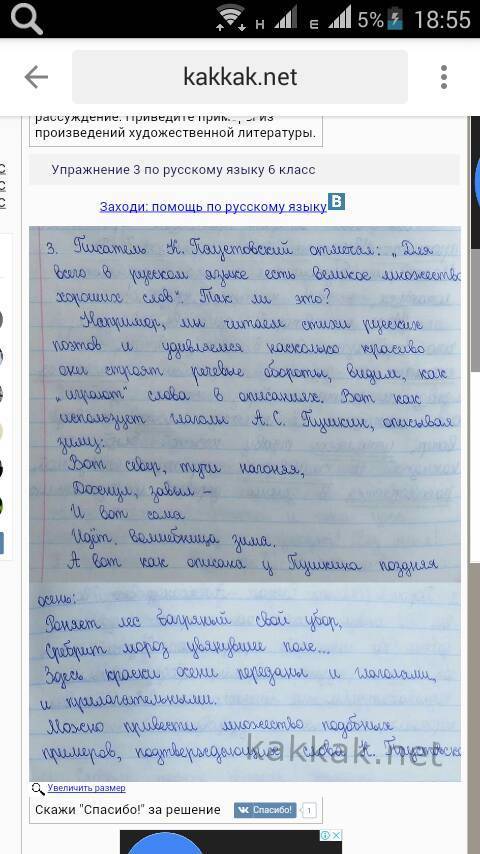 H E 5% 18:55
kakkak.net
рассуждение. Приведите примеры из
произведений художественной литературы.
Упражнение 3 по русскому языку 6 класс
Заходи: помощь по русскому языку B
3. Писатель К. Паустовский отмечал: „Для
всего в русском языке есть великое множество
хороших слов". Так ли это?
Например, мы читаем стихи русских
поэтов и удивляемся насколько красиво
они строят речевые обороты, видим, как
„играют" слова в описаниях. Вот как
использует глаголы А. С. Пушкин, описывая
зиму:
Вот север, тучи нагоняя,
Дохнул, завыл –
И вот сама
Идёт волшебница зима.
А вот как описана у Пушкина поздняя
осень:
Роняет лес багряный свой убор,
Сребрит мороз увянувшее поле...
Здесь краски осени переданы и глаголами,
и прилагательными.
Можно привести множество подобных
примеров, подтверждающих слова К. Паустовско
kakkak.net
Увеличить размер
Скажи "Спасибо!" за решение Спасибо! 1